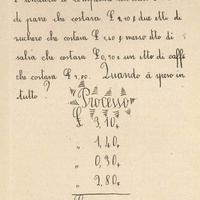 di pane che costava £ 3,10 + due etto di
zuchero che costava £ 1,40 + mezzo etto di
salia che costava £ 0,90 + un etto di caffè
che costava £ 2,80. Quando à speso in
tutto ?
Processo
£ 3,10 +
„ 1,40 +
„ 0,90 +
„ 2,80 =